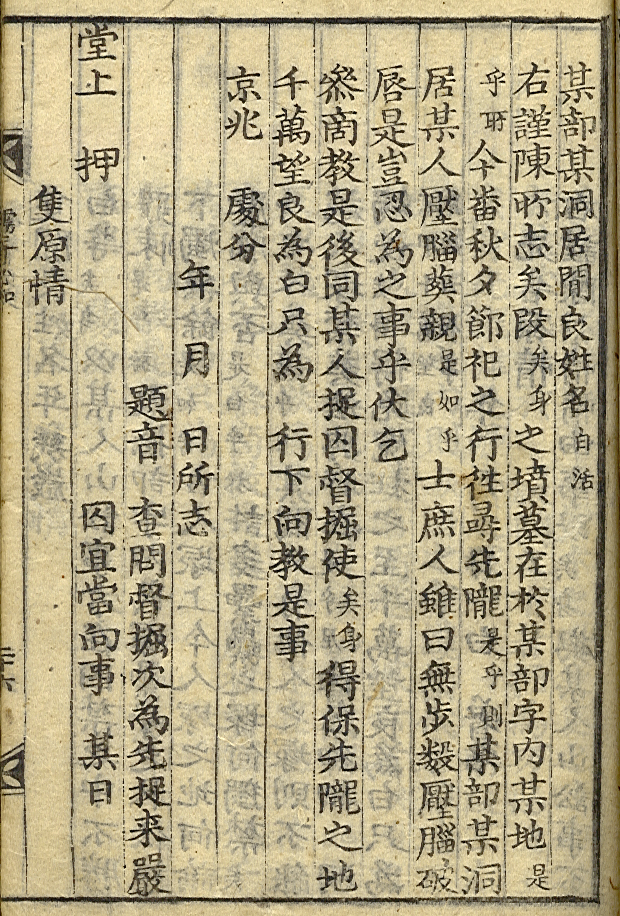 某部某洞居閒良姓名白活
右謹陳所志矣段矣身之墳墓在於某部字內某地是
乎所今番秋夕節祀之行往尋先隴是乎則某部某洞
居某人壓腦葬親是如乎士庶人雖曰無步數壓腦破
唇是豈忍為之事乎伏乞
叅商教是後同某人捉囚督掘使矣身得保先隴之地
千萬望良為白只為 行下向教是事
京兆 處分
年 月 日所志
題音 查問督掘次為先捉来嚴
堂上 押 囚宜當向事 某日
隻原情